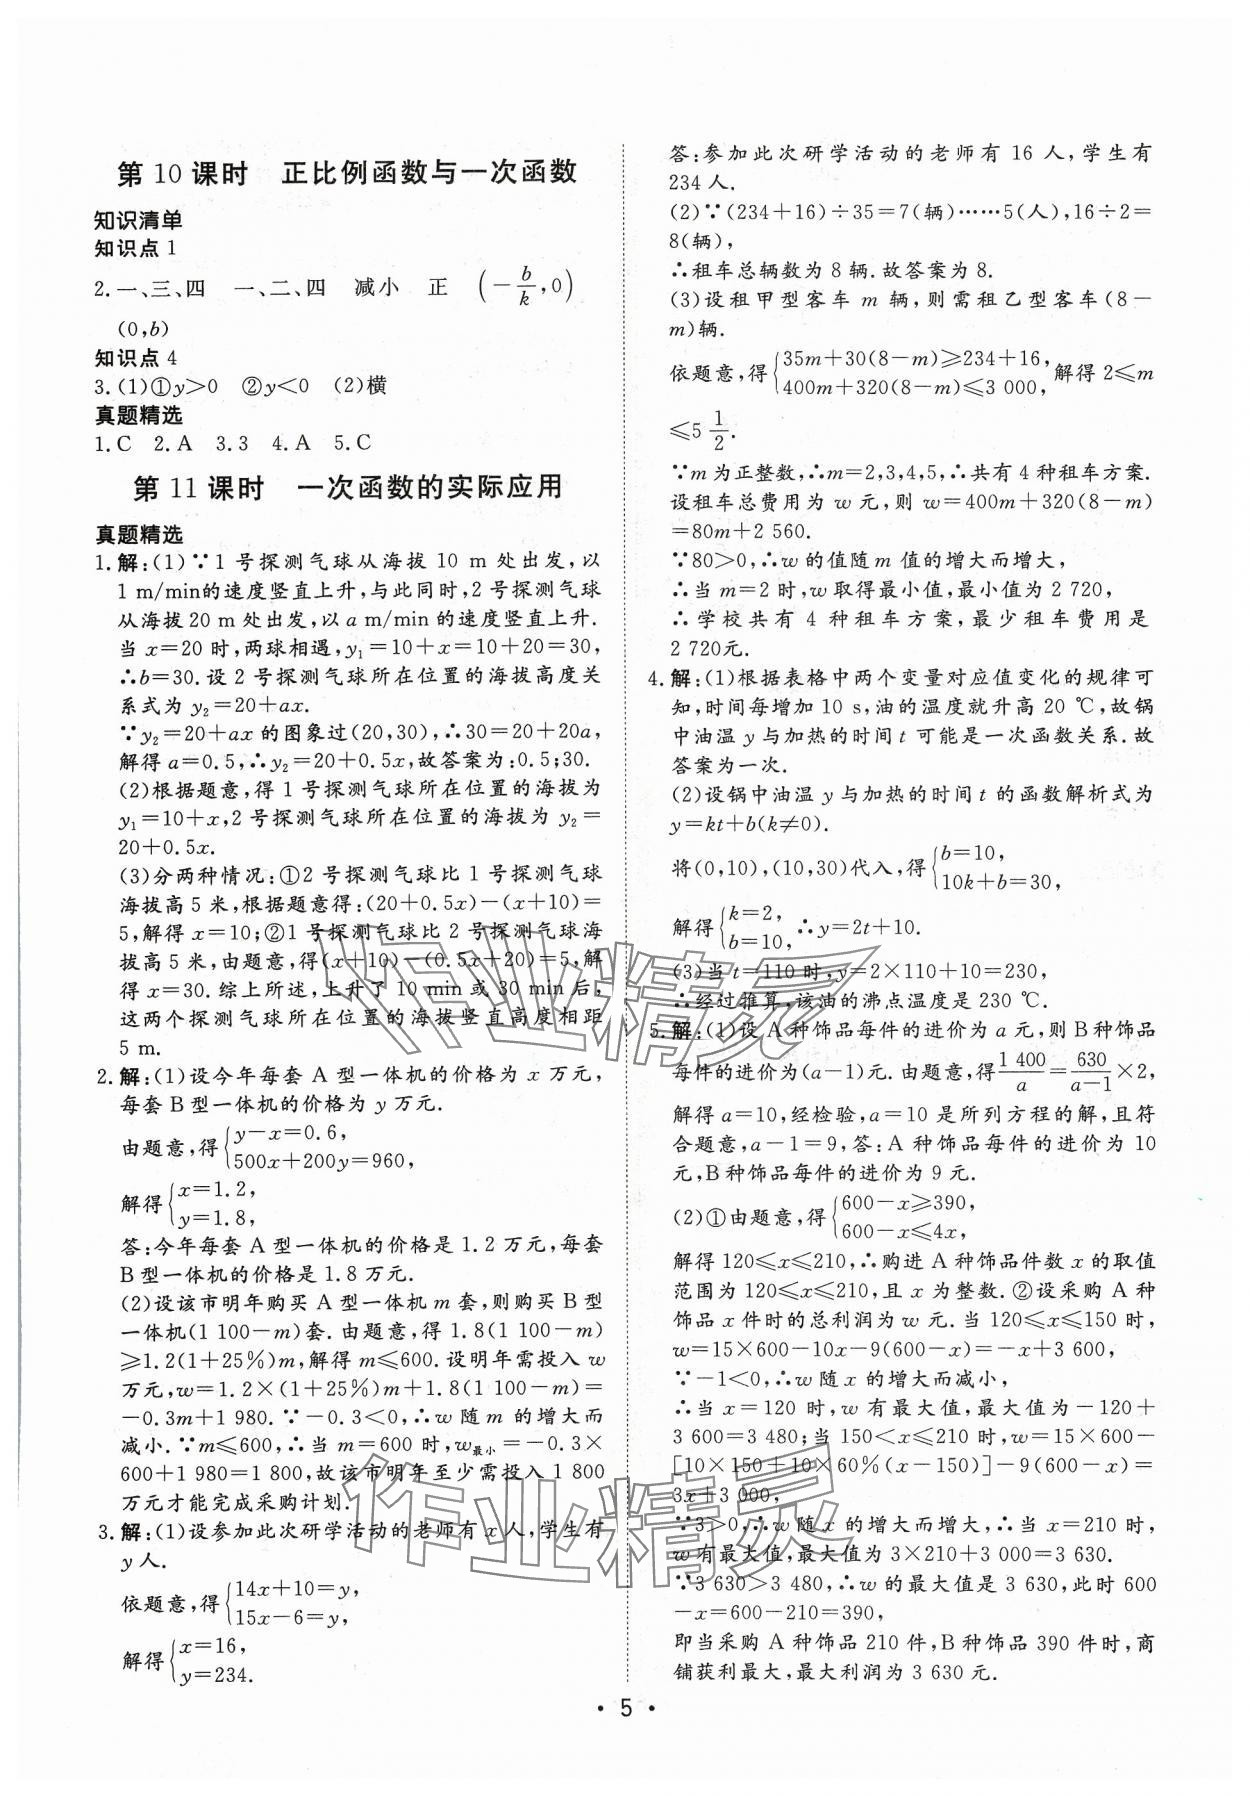 第 10 课时　正比例函数与一次函数
知识清单
知识点 1
2.一、三、四　一、二、四　减小　正　(-b/k,0)
(0,b)
知识点 4
3.(1)①y>0　②y<0　(2)横
真题精选
1.C　2.A　3.3　4.A　5.C
第 11 课时　一次函数的实际应用
真题精选
1.解:(1)∵1 号探测气球从海拔 10 m 处出发,以
1 m/min的速度竖直上升,与此同时,2 号探测气球
从海拔 20 m 处出发,以 a m/min 的速度竖直上升.
当 x=20 时,两球相遇,y₁=10+x=10+20=30,
∴b=30.设 2 号探测气球所在位置的海拔高度关
系式为 y₂=20+ax.
∵y₂=20+ax 的图象过(20,30),∴30=20+20a,
解得 a=0.5,∴y₂=20+0.5x,故答案为:0.5;30.
(2)根据题意,得 1 号探测气球所在位置的海拔为
y₁=10+x,2 号探测气球所在位置的海拔为 y₂=
20+0.5x.
(3)分两种情况:①2 号探测气球比 1 号探测气球
海拔高 5 米,根据题意得:(20+0.5x)-(x+10)=
5,解得 x=10;②1 号探测气球比 2 号探测气球海
拔高 5 米,由题意,得(x+10)-(0.5x+20)=5,解
得 x=30.综上所述,上升了 10 min 或 30 min 后,
这两个探测气球所在位置的海拔竖直高度相距
5 m.
2.解:(1)设今年每套 A 型一体机的价格为 x 万元,
每套 B 型一体机的价格为 y 万元.
由题意,得{y-x=0.6,
500x+200y=960,
解得{x=1.2,
y=1.8,
答:今年每套 A 型一体机的价格是 1.2 万元,每套
B 型一体机的价格是 1.8 万元.
(2)设该市明年购买 A 型一体机 m 套,则购买 B 型
一体机(1 100-m)套.由题意,得 1.8(1 100-m)
≥1.2(1+25%)m,解得 m≤600.设明年需投入 w
万元,w=1.2×(1+25%)m+1.8(1 100-m)=
-0.3m+1 980.∵-0.3<0,∴w 随 m 的增大而
减小.∵m≤600,∴当 m=600 时,w最小=-0.3×
600+1 980=1 800,故该市明年至少需投入 1 800
万元才能完成采购计划.
3.解:(1)设参加此次研学活动的老师有 x 人,学生有
y 人.
依题意,得{14x+10=y,
15x-6=y,
解得{x=16,
y=234.
答:参加此次研学活动的老师有 16 人,学生有
234 人.
(2)∵(234+16)÷35=7(辆)……5(人),16÷2=
8(辆),
∴租车总辆数为 8 辆.故答案为 8.
(3)设租甲型客车 m 辆,则需租乙型客车(8-
m)辆.
依题意,得{35m+30(8-m)≥234+16,
400m+320(8-m)≤3 000,解得 2≤m
≤5 1/2.
∵m为正整数,∴m=2,3,4,5,∴共有 4 种租车方案.
设租车总费用为 w 元,则 w=400m+320(8-m)
=80m+2 560.
∵80>0,∴w 的值随 m 值的增大而增大,
∴当 m=2 时,w取得最小值,最小值为 2 720,
∴学校共有 4 种租车方案,最少租车费用是
2 720元.
4.解:(1)根据表格中两个变量对应值变化的规律可
知,时间每增加 10 s,油的温度就升高 20 ℃,故锅
中油温 y 与加热的时间 t 可能是一次函数关系.故
答案为一次.
(2)设锅中油温 y 与加热的时间 t 的函数解析式为
y=kt+b(k≠0).
将(0,10),(10,30)代入,得{b=10,
10k+b=30,
解得{k=2,
b=10,∴y=2t+10.
(3)当 t=110 时,y=2×110+10=230,
∴经过推算,该油的沸点温度是 230 ℃.
5.解:(1)设 A 种饰品每件的进价为 a 元,则 B 种饰品
每件的进价为(a-1)元.由题意,得1 400/a=630/(a-1)×2,
解得 a=10,经检验,a=10 是所列方程的解,且符
合题意,a-1=9,答:A 种饰品每件的进价为 10
元,B 种饰品每件的进价为 9 元.
(2)①由题意,得{600-x≥390,
600-x≤4x,
解得 120≤x≤210,∴购进 A 种饰品件数 x 的取值
范围为 120≤x≤210,且 x 为整数.②设采购 A 种
饰品 x 件时的总利润为 w 元.当 120≤x≤150 时,
w=15×600-10x-9(600-x)=-x+3 600,
∵-1<0,∴w 随 x 的增大而减小,
∴当 x=120 时,w 有最大值,最大值为-120+
3 600=3 480;当 150<x≤210 时,w=15×600-
[10×150+10×60%(x-150)]-9(600-x)=
3x+3 000,
∵3>0,∴w 随 x 的增大而增大,∴当 x=210 时,
w有最大值,最大值为 3×210+3 000=3 630.
∵3 630>3 480,∴w 的最大值是 3 630,此时 600
-x=600-210=390,
即当采购 A 种饰品 210 件,B 种饰品 390 件时,商
铺获利最大,最大利润为 3 630 元.
作业精灵
作业精灵
• 5 •